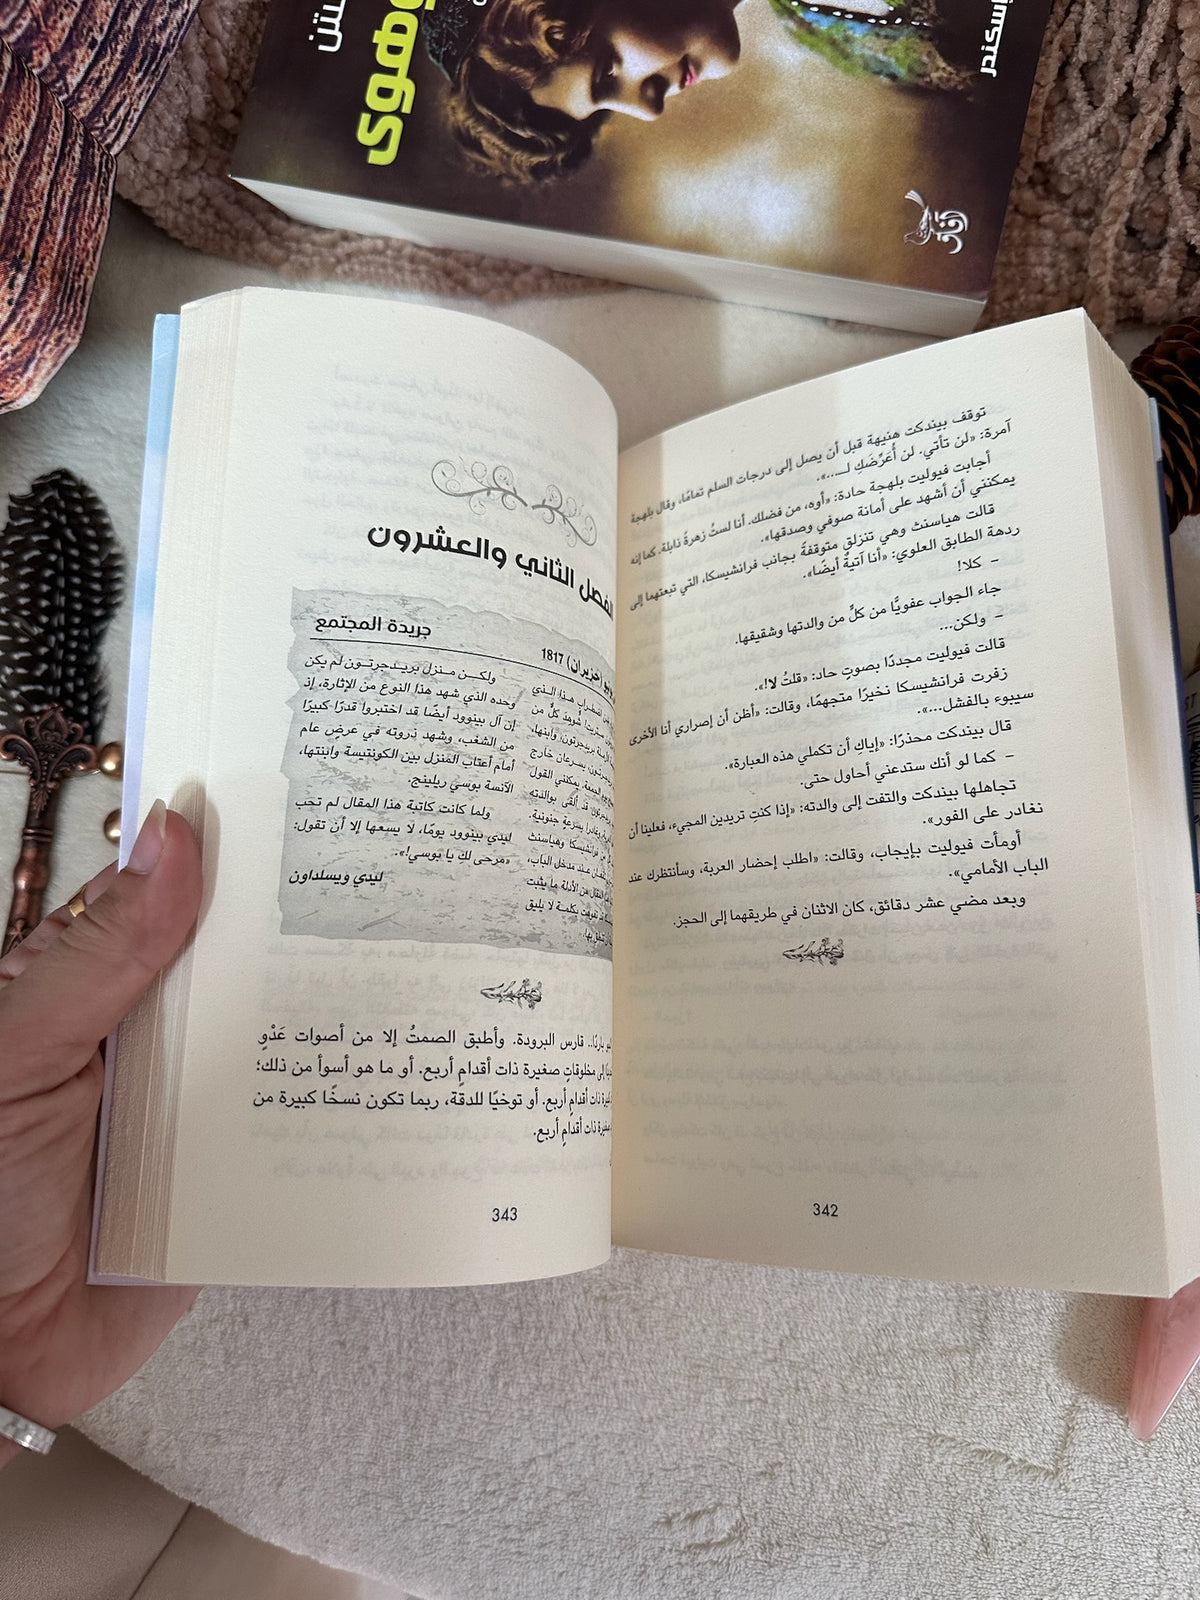 وهوى
إسكندر
آفاق
توقف بيندكت هنيهة قبل أن يصل إلى درجات السلم تمامًا، وقال بلهجة
آمرة: «لن تأتي. لن أُعَرِّضَكِ لـ...».
أجابت فيوليت بلهجة حادة: «أوه، من فضلك. أنا لستُ زهرةً ذابلة. كما إنه
يمكنني أن أشهد على أمانة صوفي وصدقها».
قالت هياسنث وهي تنزلق متوقفةً بجانب فرانشيسكا، التي تبعتهما إلى
ردهة الطابق العلوي: «أنا آتيةٌ أيضًا».
– كلا!
جاء الجواب عفويًّا من كلٍّ من والدتها وشقيقها.
– ولكن...
قالت فيوليت مجددًا بصوتٍ حاد: «قلتُ لا!».
زفرت فرانشيسكا نخيرًا متجهمًا، وقالت: «أظن أن إصراري أنا الأخرى
سيبوء بالفشل...».
قال بيندكت محذرًا: «إياكِ أن تكملي هذه العبارة».
– كما لو أنك ستدعني أحاول حتى.
تجاهلها بيندكت والتفت إلى والدته: «إذا كنتِ تريدين المجيء، فعلينا أن
نغادر على الفور».
أومأت فيوليت بإيجاب، وقالت: «اطلب إحضار العربة، وسأنتظرك عند
الباب الأمامي».
وبعد مضي عشر دقائق، كان الاثنان في طريقهما إلى الحجز.
342
الفصل الثاني والعشرون
جريدة المجتمع
حزيران) 1817
هذا الذي
شوهد كلٌّ من
بريدجرتون، وابنها،
يسرعان خارج
الجمعة. يمكنني القول
قد ألقى بوالدته
بسرعةٍ جنونية.
فرانشيسكا وهياسنث
عند مدخل الباب،
من الأدلة ما يثبت
تفوهت بكلمة لا يليق
ولكـــن منـــزل بريـــدجرتـــون لم يكن
وحده الذي شهد هذا النوع من الإثارة، إذ
إن آل بينوود أيضًا قد اختبروا قدرًا كبيرًا
من الشغب، وشهد ذروته في عرض عام
أمام أعتاب المنزل بين الكونتيسة وابنتها،
الآنسة بوسي ريلينج.
ولما كانت كاتبة هذا المقال لم تحب
ليدي بينوود يومًا، لا يسعها إلا أن تقول:
«مرحى لكِ يا بوسي!».
ليدي ويسلداون
باردًا.. قارس البرودة. وأطبق الصمتُ إلا من أصوات عَدْوٍ
إلى مخلوقاتٍ صغيرة ذات أقدامٍ أربع. أو ما هو أسوأ من ذلك؛
ذات أقدامٍ أربع. أو توخيًا للدقة، ربما تكون نسخًا كبيرة من
صغيرة ذات أقدامٍ أربع.
343